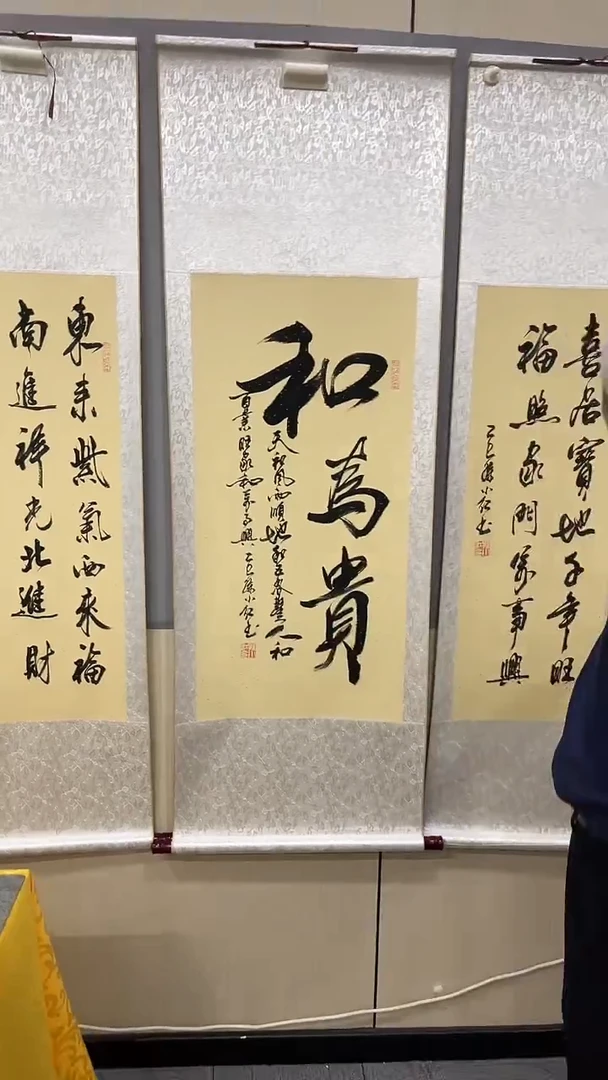 喜居寶地千年旺
福照家門萬事興
乙巳
和為貴
天和風雨順地和五谷豐人和
百業旺家和萬事興 乙巳
東来紫氣西来福
南進祥光北進財